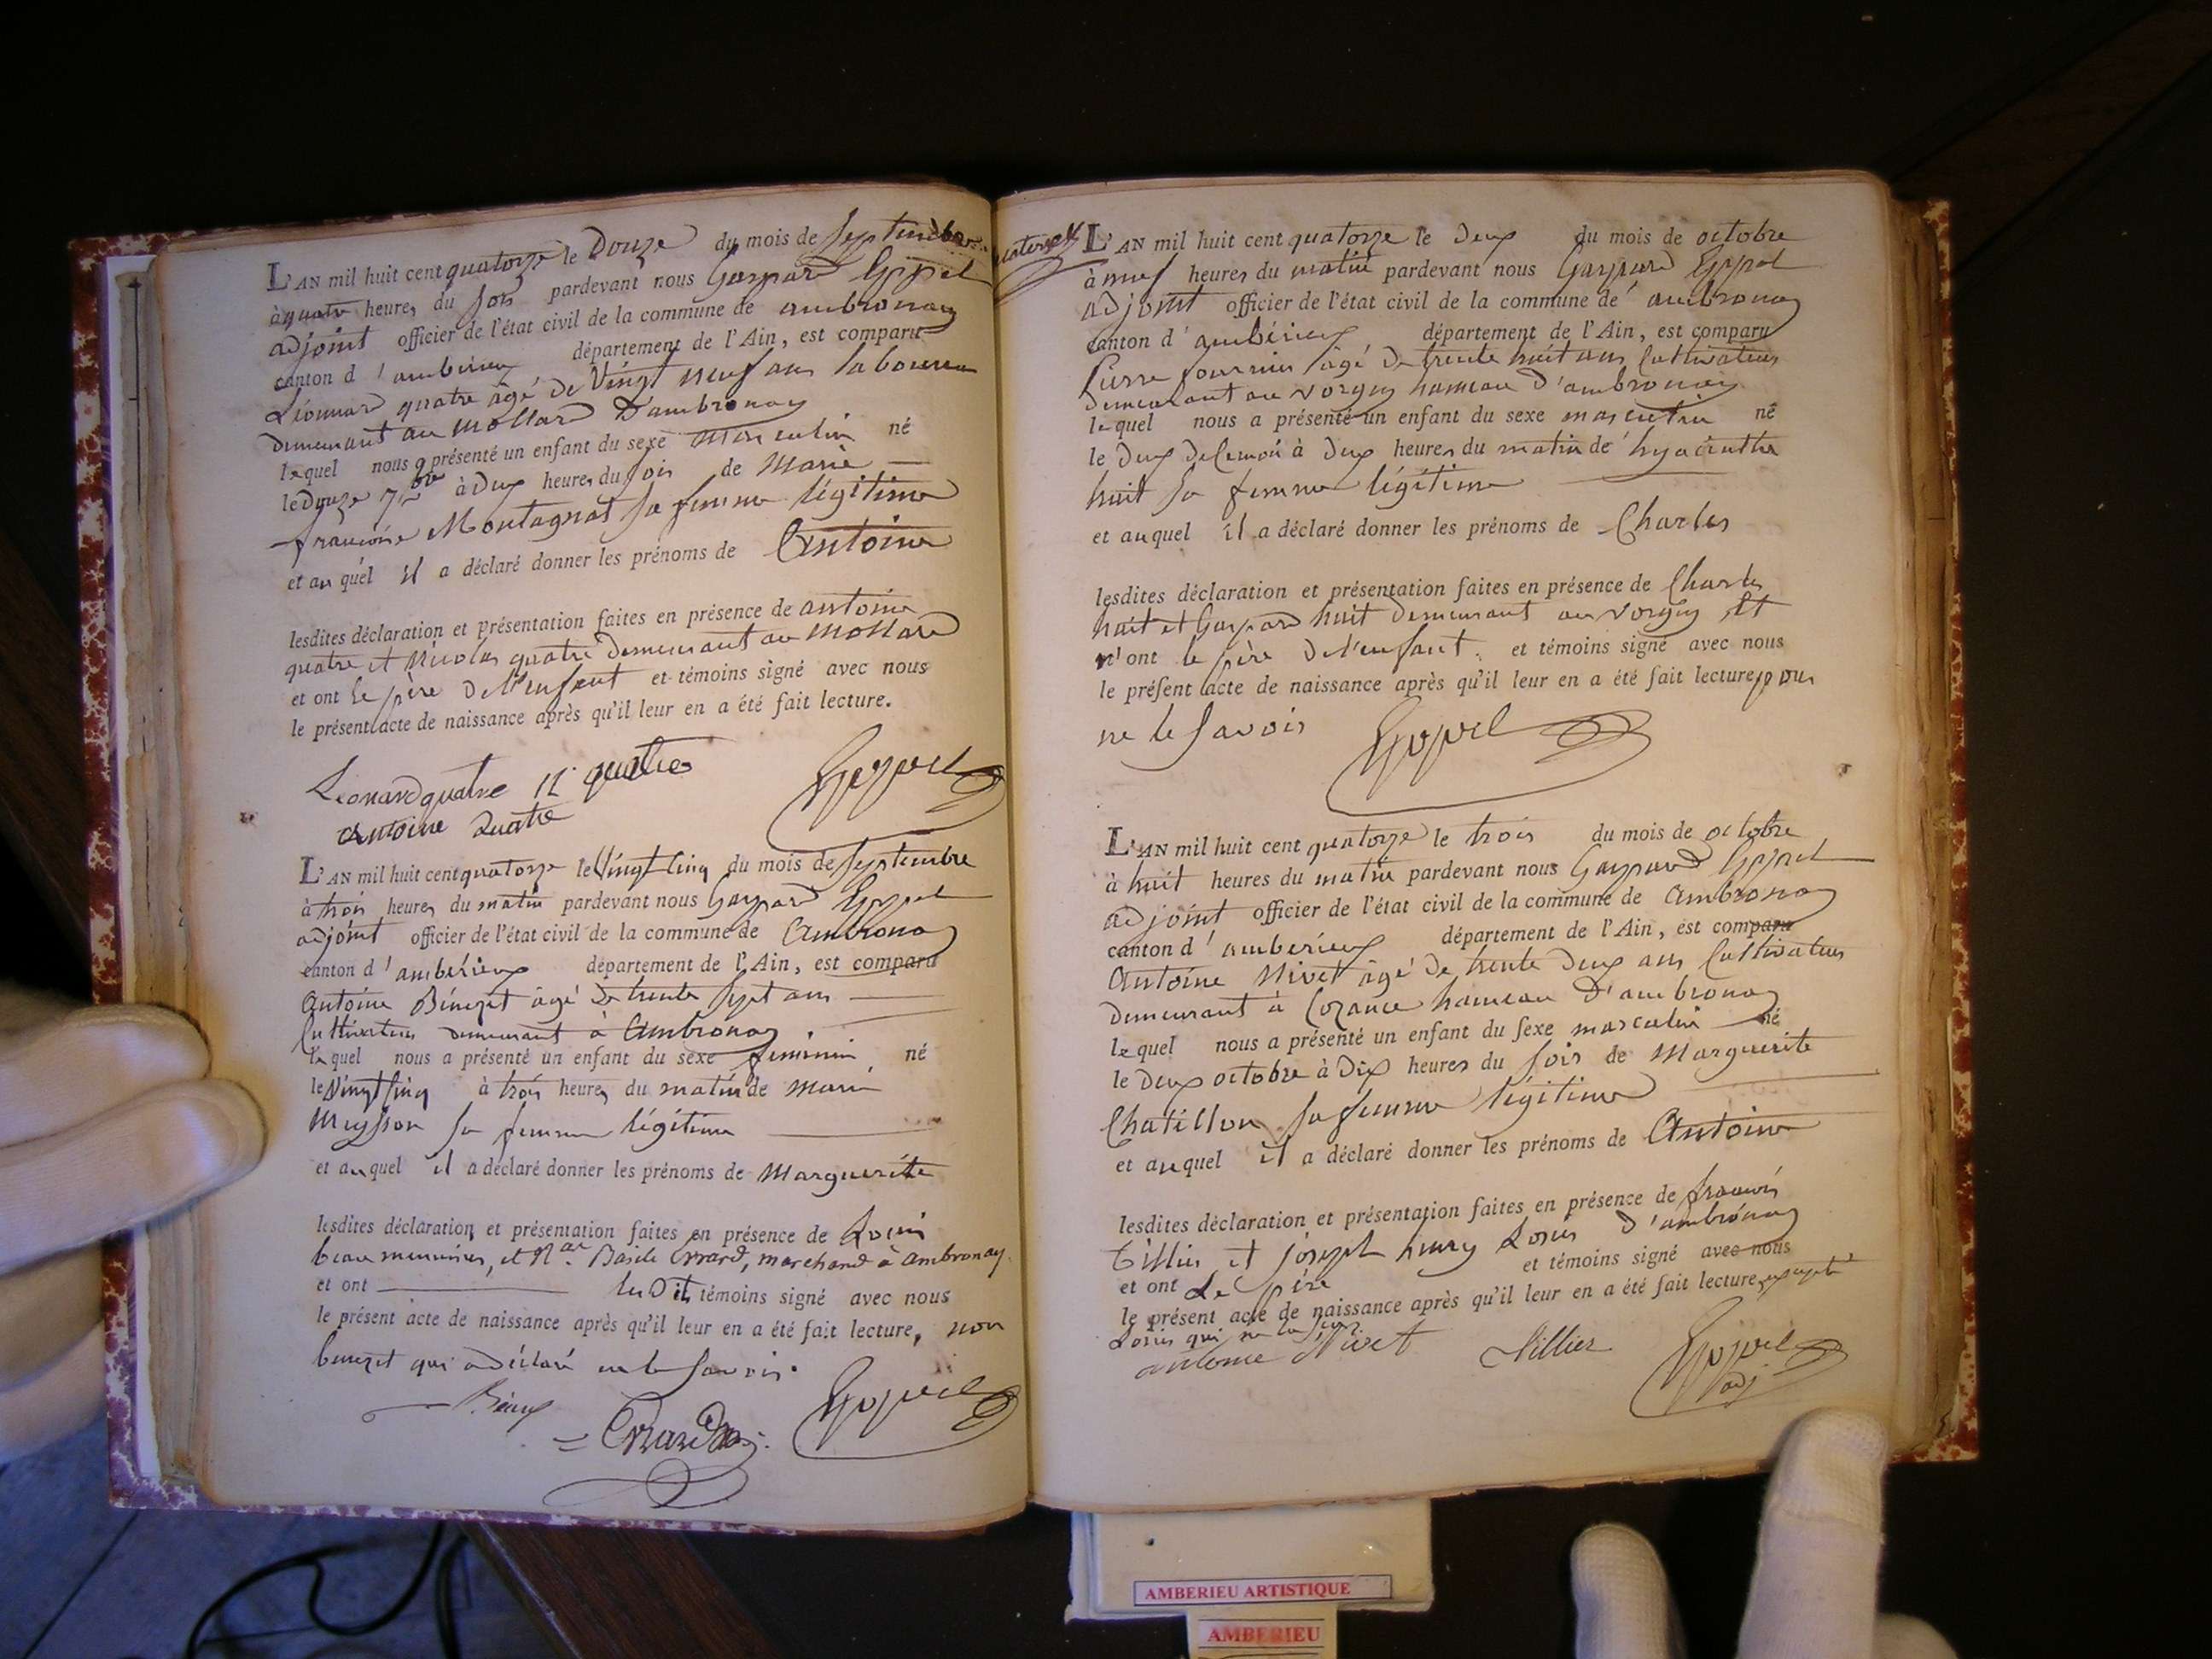 L'AN mil huit cent quatorze le Douze du mois de septembre
à quatre heures du soir pardevant nous Gaspard Goppel
adjoint officier de l'état civil de la commune de ambronay
canton d'amberieux département de l'Ain, est comparu
Léonnard quatre âgé de vingt neuf ans laboureur
demeurant au mollard D'ambronay
lequel nous a présenté un enfant du sexe masculin né
le douze 7bre à deux heures du soir de Marie
francoise Montagnat sa femme légitime
et auquel il a déclaré donner les prénoms de Antoine
lesdites déclaration et présentation faites en présence de antoine
quatre et Nicolas quatre demeurant au mollard
et ont le père de l'enfant et témoins signé avec nous
le présent acte de naissance après qu'il leur en a été fait lecture.
Leonard quatre n. quatre
antoine quatre
L'AN mil huit cent quatorze le vingt cinq du mois de septembre
à trois heures du matin pardevant nous Gaspard Goppel
adjoint officier de l'état civil de la commune de Ambronay
canton d'amberieux département de l'Ain, est comparu
Antoine Bénezet âgé de trente sept ans
Cultivateur demeurant à Ambronay.
lequel nous a présenté un enfant du sexe feminin né
le vingt cinq à trois heures du matin de marie
Meysson sa femme légitime
et auquel il a déclaré donner les prénoms de Marguerite
lesdites déclaration et présentation faites en présence de Louis
beau menuisier, et Basile Errard, marchand à ambronay.
et ont lesdits témoins signé avec nous
le présent acte de naissance après qu'il leur en a été fait lecture, non
benezet qui a déclaré ne le savoir.
L'AN mil huit cent quatorze le deux du mois de octobre
à neuf heures du matin pardevant nous Gaspard Goppel
adjoint officier de l'état civil de la commune de ambronay
canton d'ambérieux département de l'Ain, est comparu
Pierre fournier âgé de trente huit ans Cultivateur
demeurant au vorgey hameau d'ambronay
lequel nous a présenté un enfant du sexe masculin né
le deux de ce mois à deux heures du matin de hyacinthe
huit sa femme légitime
et auquel il a déclaré donner les prénoms de Charles
lesdites déclaration et présentation faites en présence de Charles
huit et Gaspard huit demeurant au vorgey, et
n'ont le père de l'enfant et témoins signé avec nous
le présent acte de naissance après qu'il leur en a été fait lecture pour
ne le savoir
L'AN mil huit cent quatorze le trois du mois de octobre
à huit heures du matin pardevant nous Gaspard Goppel
adjoint officier de l'état civil de la commune de Ambronay
canton d'amberieux département de l'Ain, est comparu
Antoine Nivet âgé de trente deux ans Cultivateur
demeurant à Cozance hameau D'ambronay
lequel nous a présenté un enfant du sexe masculin né
le deux octobre à dix heures du soir de Marguerite
Chatillon sa femme légitime
et auquel il a déclaré donner les prénoms de Antoine
lesdites déclaration et présentation faites en présence de francois
tillier et joseph henry Losier d'ambronay
et ont Le père et témoins signé avec nous
le présent acte de naissance après qu'il leur en a été fait lecture, excepté
Losier qui ne le
antoine Nivet tillier
adj
AMBERIEU ARTISTIQUE
AMBERIEU